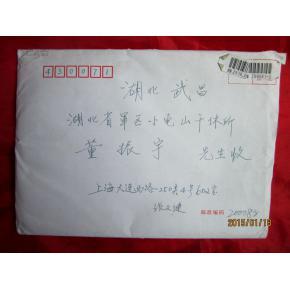 430071
湖北 武昌
湖北省军区小龟山干休所
董振宇 先生收
上海大连西路250弄4号602室
邮政编码 200083
2015/01/19